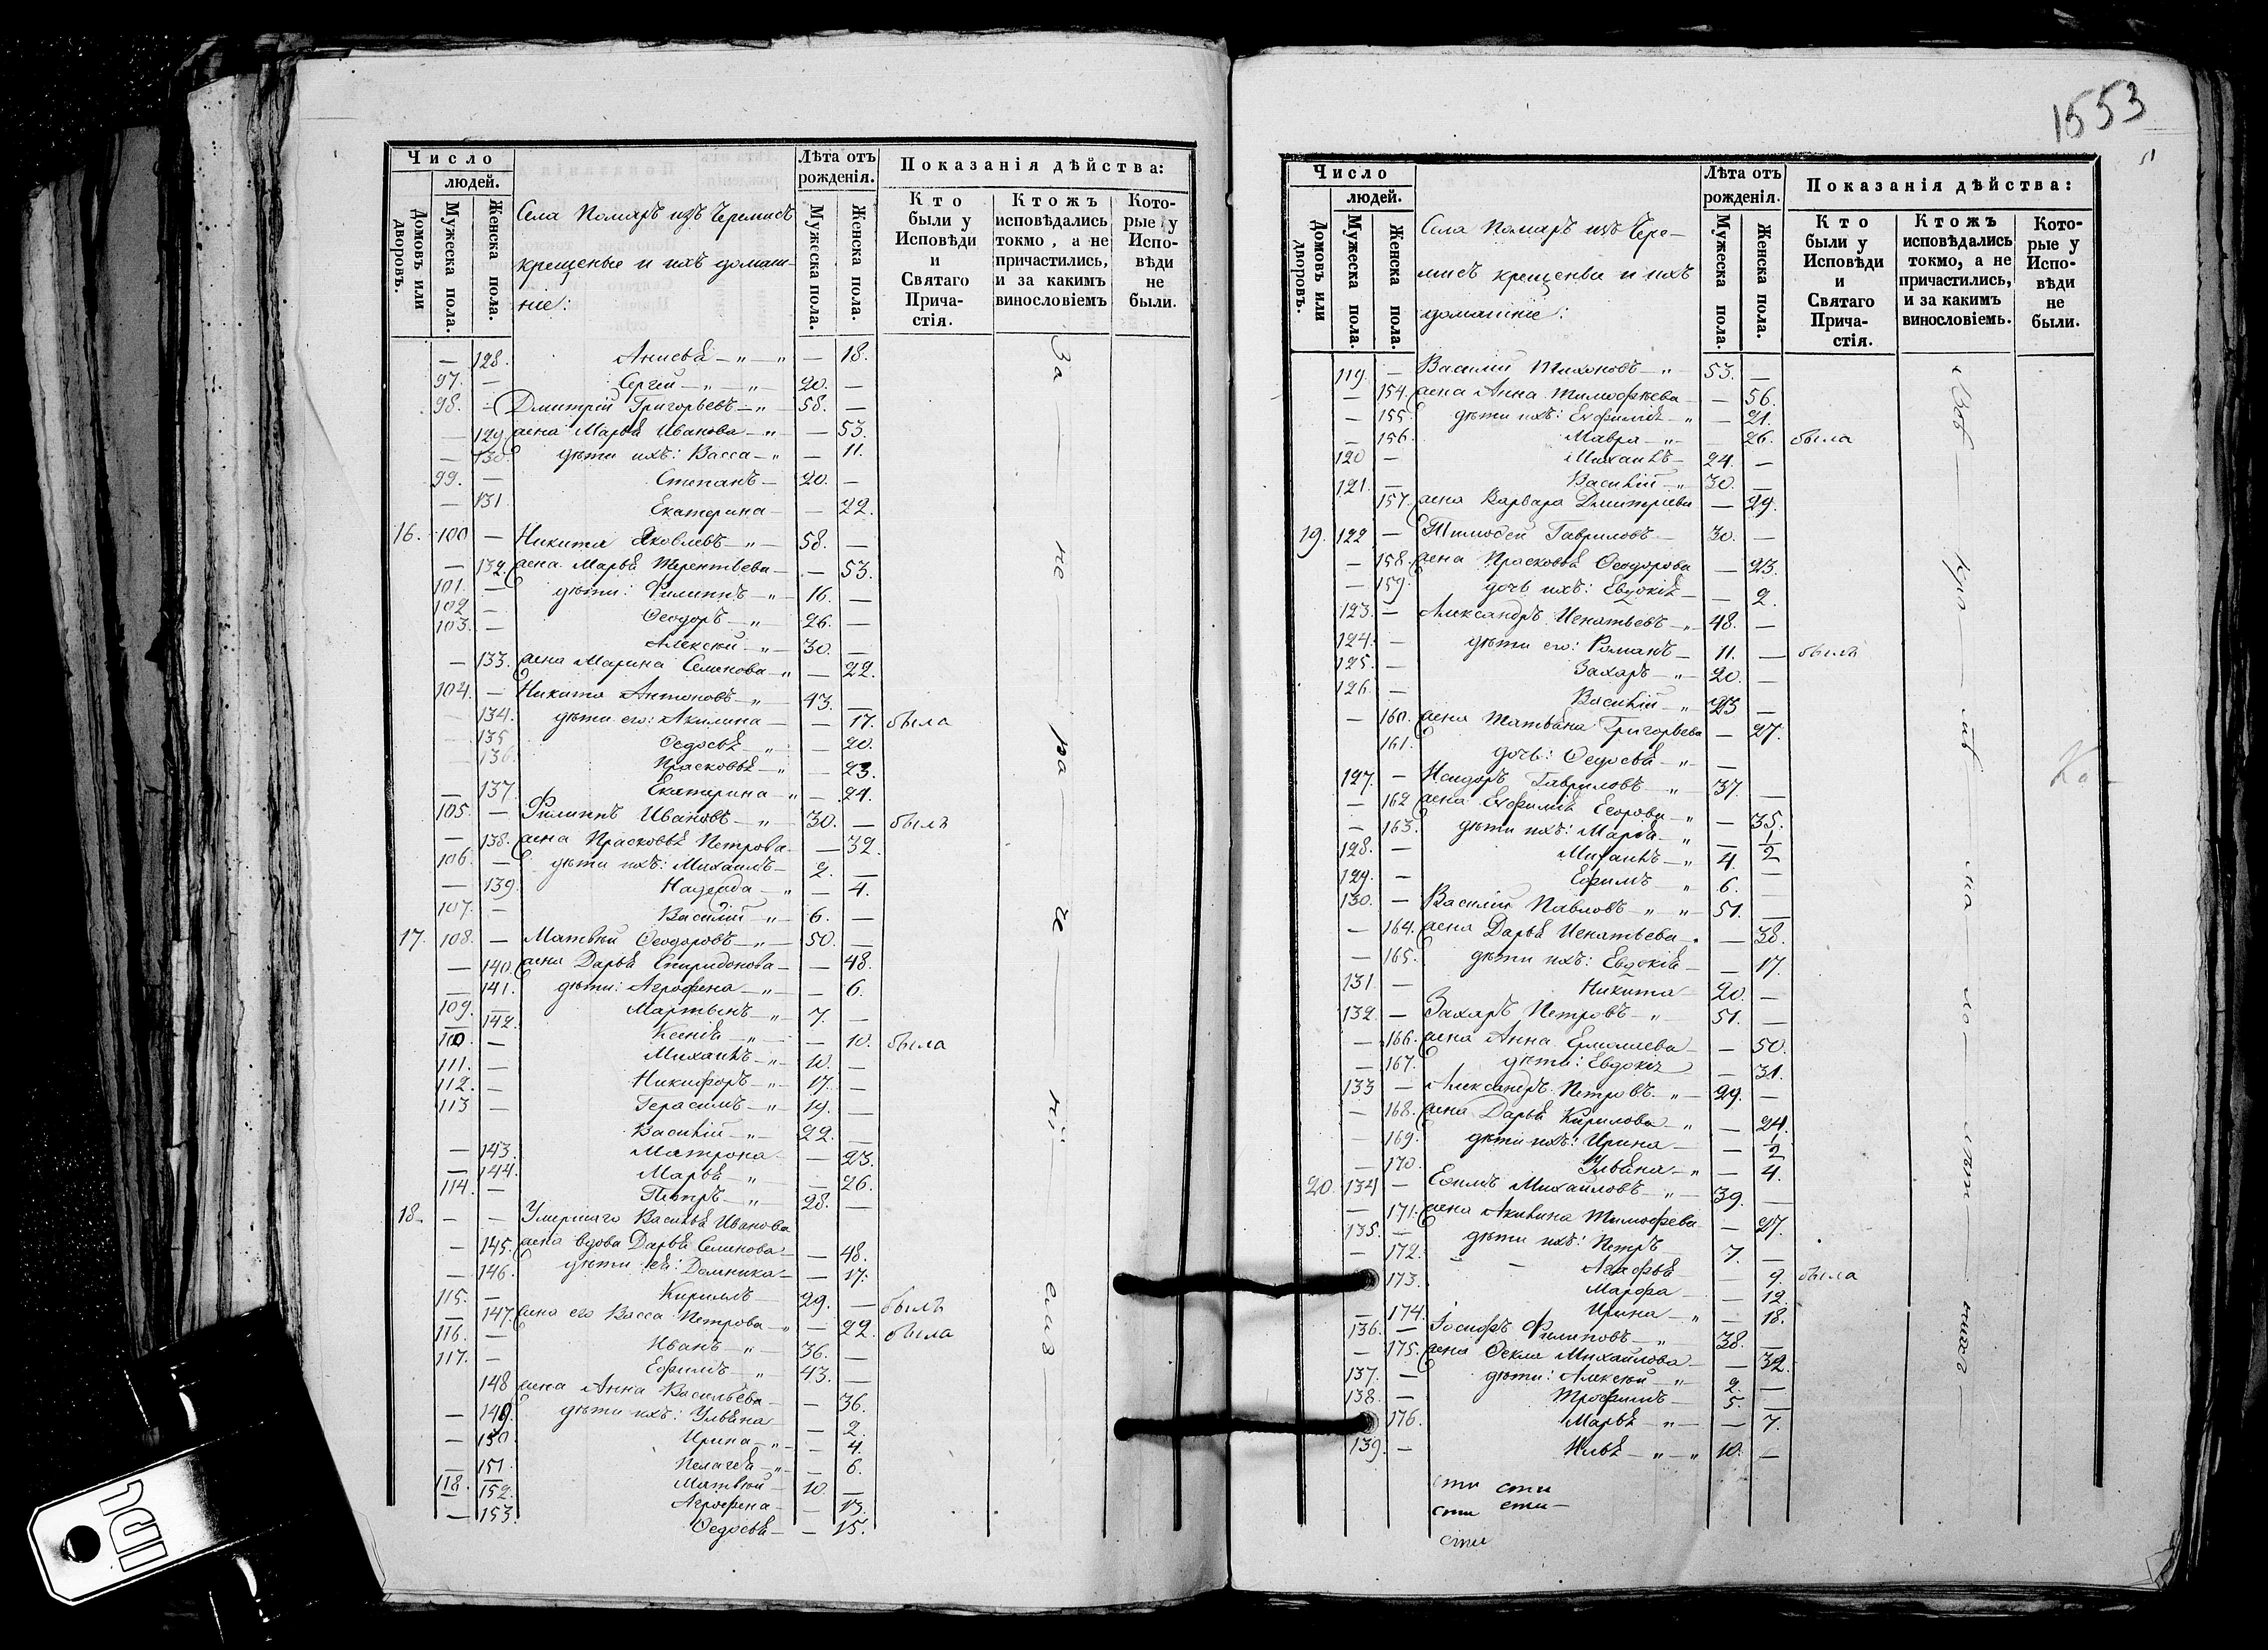 1553
Число
людей.
Домовъ или дворовъ.
Мужеска пола.
Женска пола.
Села Помаръ изъ Черемисъ
крещеные и ихъ домаш-
ніе:
Лѣта отъ рожденія.
Мужеска пола.
Женска пола.
Показанія дѣйства:
Кто были у Исповѣди и Святаго Прича-стія.
Ктожъ исповѣдались токмо, а не причастились, и за какимъ винословіемъ
Кото-рые у Испо-вѣди не были.
— 128. Анисья — 18.
97. — Сергій 20. —
98. — Дмитрій Григорьевъ 58. —
— 129 жена Марья Иванова — 53.
— 130. дѣти ихъ: Васса — 11.
99. — Степанъ 20. —
— 131 Екатерина — 22.
16. 100 — Никита Яковлевъ 58. —
— 132. жена Марья Терентьева — 53.
101. — дѣти: Филиппъ 16. —
102 — Ѳеодоръ 26. —
103. — Алексѣй 30. —
— 133. жена Марина Семенова — 22.
104. — Никита Антоновъ 43. —
— 134. дѣти его: Акилина — 17. была
— 135 Ѳедосья — 20.
— 136. Прасковья — 23.
— 137. Екатерина — 24.
105. — Филиппъ Ивановъ 30. — былъ
— 138. жена Прасковья Петрова — 32.
106. — дѣти ихъ: Михаилъ 2. —
— 139. Надежда — 4.
107. — Василій 6. —
17. 108. — Матвѣй Ѳеодоровъ 50. —
— 140. жена Дарья Спиридонова — 48.
— 141. дѣти: Агрофена — 6.
109. — Мартынъ 7. —
— 142. Ксенія — 10. была
110 — Михаилъ 10. —
111. — Никифоръ 17. —
112. — Герасимъ 19. —
113 — Василій 22. —
— 143. Матрона — 23.
— 144. Марья — 26.
114. — Петръ 28. —
18. — — Умершаго Василья Иванова
— 145. жена вдова Дарья Семенова — 48.
— 146. дѣти ея: Домника — 17.
115. — Кириллъ 29. — былъ
— 147. жена его Васса Петрова — 22. была
116. — Иванъ 36. —
117. — Ефимъ 43. —
148 жена Анна Васильева — 36.
— 149. дѣти ихъ: Ульяна — 2.
— 150. Ирина — 4.
— 151. Пелагея — 6.
118. — Матвѣй 10. —
— 152. Агрофена — 13.
— 153. Ѳедосья — 15.
За не ра че ні емъ
Число
людей.
Домовъ или дворовъ.
Мужеска пола.
Женска пола.
Села Помаръ изъ Чере-
мисъ крещеные и ихъ
домашніе:
Лѣта отъ рожденія.
Мужеска пола.
Женска пола.
Показанія дѣйства:
Кто были у Исповѣди и Святаго Прича-стія.
Ктожъ исповѣдались токмо, а не причастились, и за какимъ винословіемъ.
Кото-рые у Испо-вѣди не были.
119. — Василій Тихоновъ 53. —
— 154. жена Анна Тимофѣева — 56.
— 155. дѣти ихъ: Евфимія — 21.
— 156. Мавра — 26. была
120 — Михаилъ 24. —
121. — Василій 30. —
157. жена Варвара Дмитріева — 29.
19. 122 — Тимоѳей Гавриловъ 30. —
— 158. жена Прасковья Ѳеодорова — 23.
— 159. дочь ихъ: Евдокія — 2.
123. — Александръ Игнатьевъ 48. —
124. — дѣти его: Романъ 11. — былъ
125. — Захаръ 20. —
126. — Василій 23 —
— 160. жена Татьяна Григорьева — 27.
161. дочь: Ѳедосья —
127. — Исидоръ Гавриловъ 37. —
— 162 жена Евфимія Егорова — 35.
— 163. дѣти ихъ: Марѳа — 1/2
128. — Михаилъ 4. —
129. — Ефимъ 6. —
130. — Василій Павловъ 51. —
— 164. жена Дарья Игнатьева — 38.
— 165. дѣти ихъ: Евдокія — 17.
131. — Никита 20. —
132. — Захаръ Петровъ 51. —
— 166. жена Анна Ермолаева — 50.
— 167. дѣти: Евдокія — 31.
133 — Александръ Петровъ 29. —
— 168. жена Дарья Кирилова — 24.
— 169. дѣти ихъ: Ирина — 1/2
— 170. Ульяна — 4.
20. 134 — Ефимъ Михайловъ 39. —
— 171. жена Акилина Тимофѣева — 27.
135. — дѣти ихъ: Петръ 7. —
— 172. Агафья — 9. была
173. Марфа — 12.
— 174. Ирина — 18.
136. — Іосифъ Филиповъ 38. —
— 175. жена Ѳекла Михайлова — 32.
137. — дѣти: Алексѣй 2. —
138. — Трофимъ 5. —
176. Марья — 7.
139. — Илья 10. —
сти сти
сти сти
сти